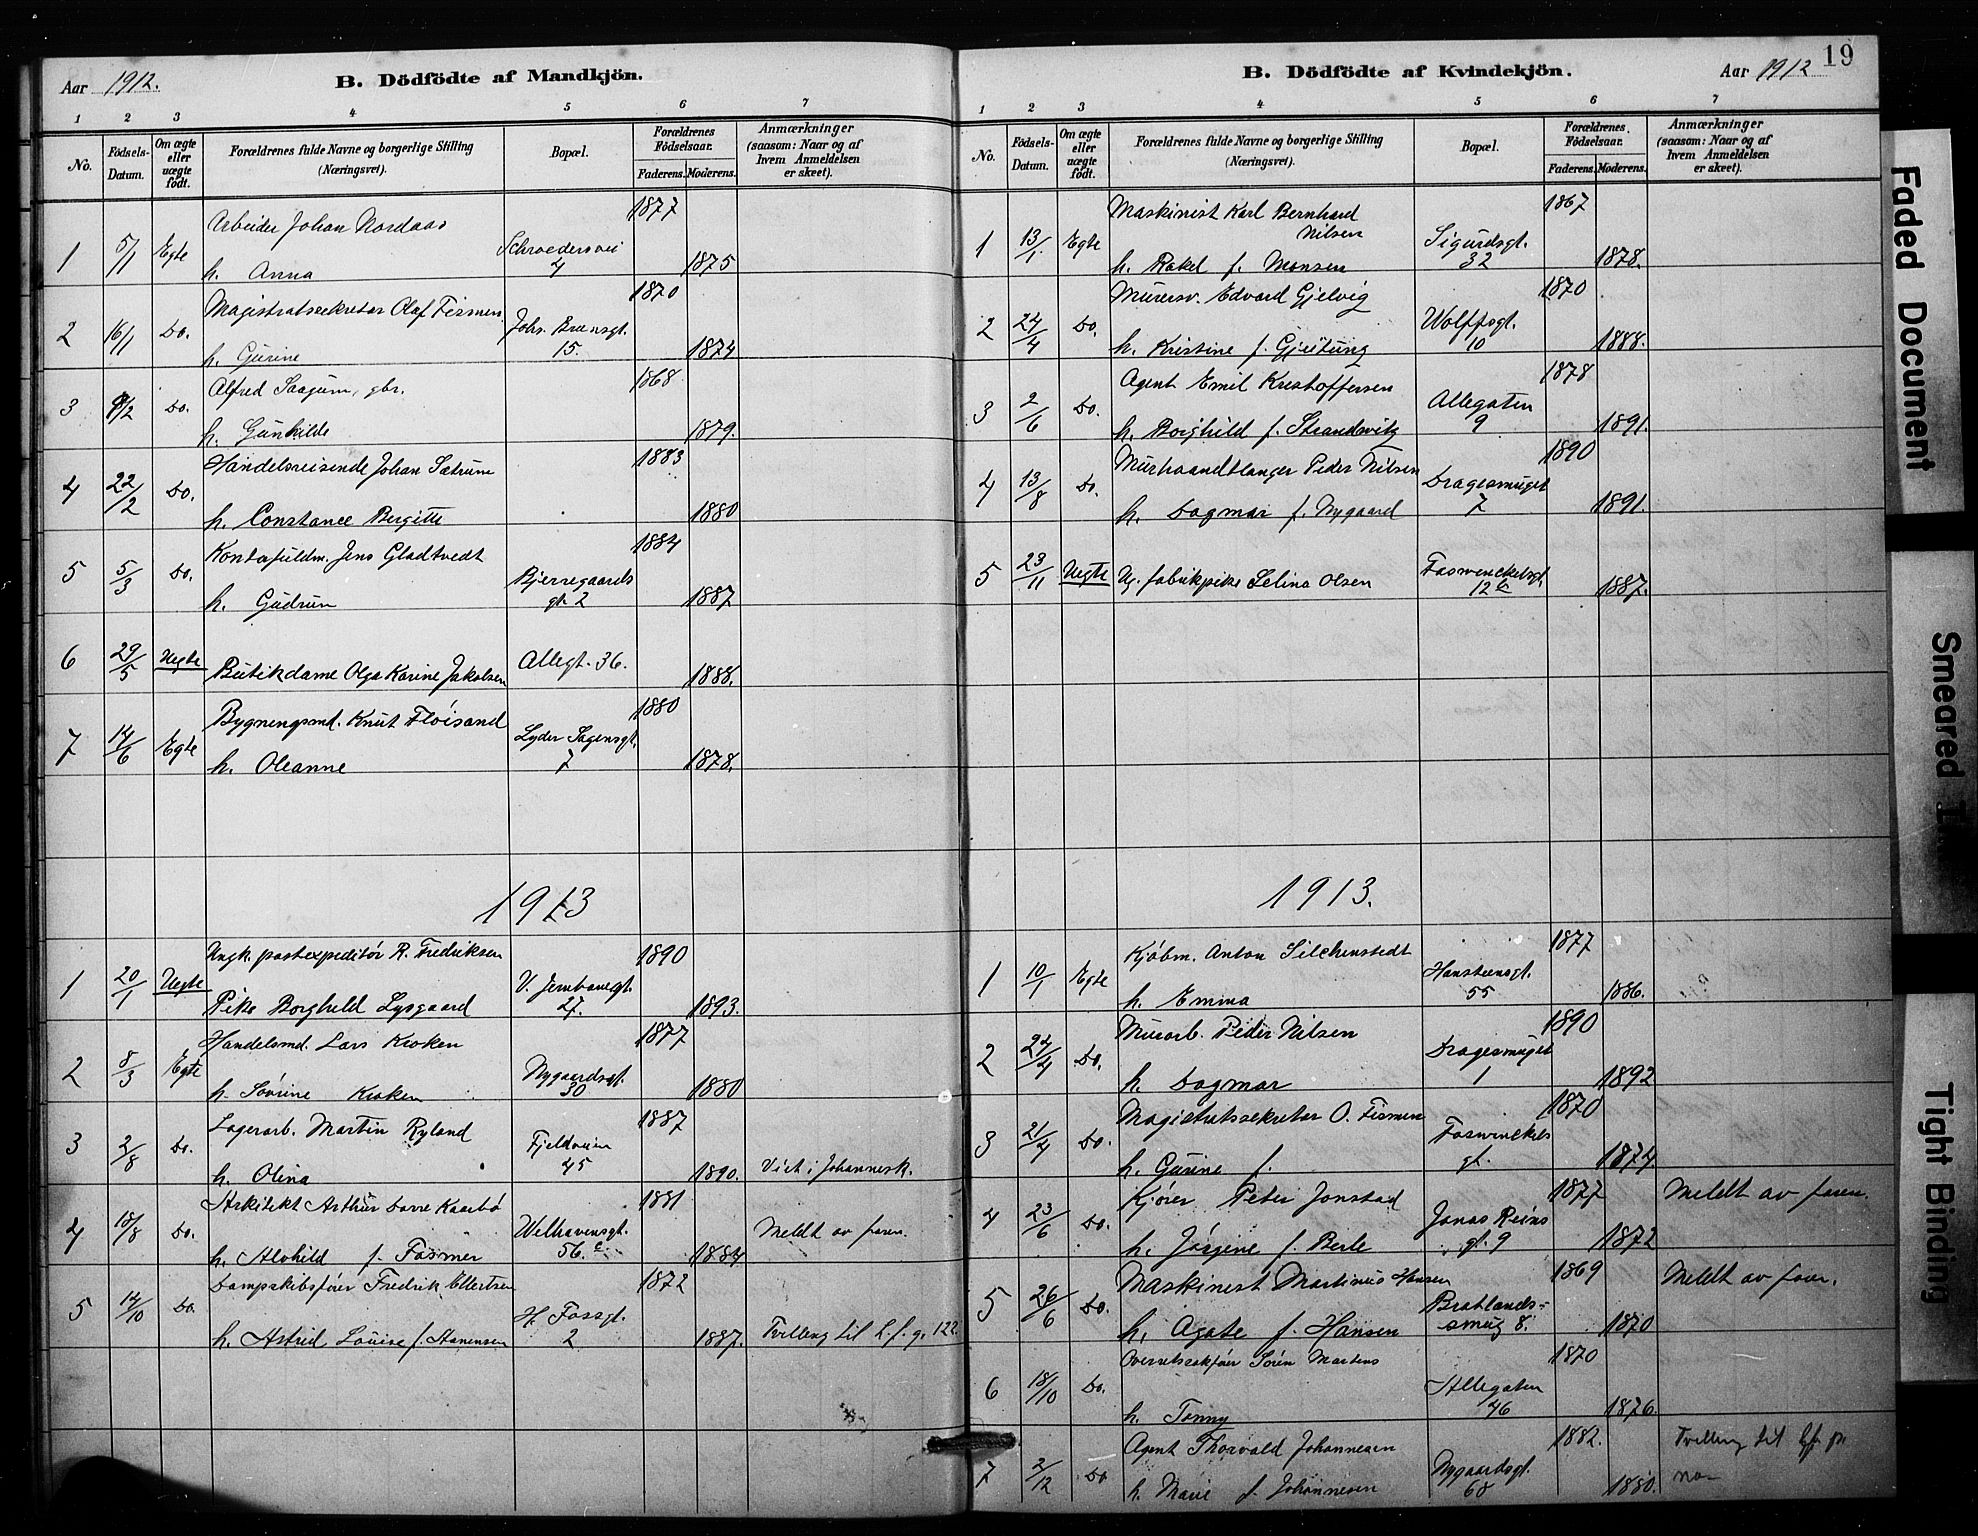 19
Aar 1912.
B. Dödfödte af Mandkjön.
1 2 3 4 5 6 7
No.
Födsels-Datum.
Om ægte eller uægte födt.
Forældrenes fulde Navne og borgerlige Stilling (Næringsvei).
Bopæl.
Forældrenes Födselsaar.
Faderens. Moderens.
Anmærkninger (saasom: Naar og af hvem Anmeldelsen er skeet).
Arbeider Johan Nordaas 1877
1 5/1 Egte h. Anna Schroedersvei 4 1875
Magistratssekretær Olaf Fismen 1870
2 16/1 Do. h. Gurine Johs. Brunsgt. 15. 1874
Alfred Saagum, gbr. 1868
3 9/2 Do. h. Gunhilde 1879.
Handelsreisende Johan Sætrum 1883
4 22/2 Do. h. Constance Bergitte 1880
Kontorfuldm. Jens Gladtvedt 1884
5 5/3 Do. h. Gudrun Bjerregaards gt. 2 1887
6 29/5 Uegte Butikdame Olga Karine Jakobsen Allegt. 36. 1888.
Bygningsmd. Knut Fløisand 1880
7 14/6 Egte h. Oleanne Lyder Sagensgt. 7 1878.
1913
Ungk. postexpeditör R. Fredriksen 1890
1 20/1 Uegte Pike Borghild Lysgaard V. Jernbanegt. 27. 1893.
Handelsmd. Lars Kroken 1877
2 8/3 Egte h. Sörine Kroken Nygaardsgt. 30 1880
Lagerarb. Martin Ryland 1887
3 2/8 Do. h. Olina Fjeldveien 45 1890. Viet i Johannesk.
Arkitekt Arthur Davre Kaarbö 1881
4 18/8 Do. h. Alvhild f. Fasmer Welhavensgt. 56.c 1884 Meldt av faren.
Dampskibsfører Fredrik Ellertsen 1872
5 14/10 Do. h. Astrid Louise f. H. Fossgt. 2 1887. Tvilling til l. f. g. 122.
B. Dödfödte af Kvindekjön.
Aar 1912
1 2 3 4 5 6 7
No.
Födsels-Datum.
Om ægte eller uægte födt.
Forældrenes fulde Navne og borgerlige Stilling (Næringsvei).
Bopæl.
Forældrenes Födselsaar.
Faderens. Moderens.
Anmærkninger (saasom: Naar og af hvem Anmeldelsen er skeet).
Maskinist Karl Bernhard Nilsen 1867
1 13/1 Egte h. Rakel f. Monsen Sigurdsgt. 32 1878.
Murersv. Edvard Gjelvig 1870
2 24/4 Do. h. Kristine f. Gjeitung Wolffsgt. 10 1888.
Agent Emil Kristoffersen 1878
3 2/6 Do. h. Borghild f. Strandvitz Allegaten 9 1891.
Murhaandtlanger Peder Nilsen 1890
4 13/8 Do. h. Dagmar f. Nygaard Dragesmuget 7 1891.
5 23/11 Uegte Ug. fabrikpike Selina Olsen Foswinckelsgt. 12b 1887.
1913.
Kjöbm. Anton Silchenstedt 1877
1 10/1 Egte h. Emma Hansteensgt. 55 1886.
Murarb. Peder Nilsen 1890
2 24/4 Do. h. Dagmar Dragesmuget 1 1892
Magistratssekretær O. Fismen 1870
3 21/4 Do. h. Gurine f. Foswinckels gt. 1874.
Kjører Peter Jonstad 1877 Meldt av faren.
4 23/6 Do. h. Jörgine f. Berle Jonas Reins gt. 9 1872
Maskinist Martinus Hansen 1869 Meldt av faren.
5 26/6 Do. h. Agate f. Hansen Bratlandssmug 8. 1870
Overretssakfører Sören Martens 1870
6 18/10 Do. h. Tonny Allegaten 46 1876.
Agent Thorvald Johannesen 1882. Tvilling til
7 2/12 Do h. Marie f. Johannesen Nygaardsgt. 68 1880.
Faded Document
Smeared
Tight Binding